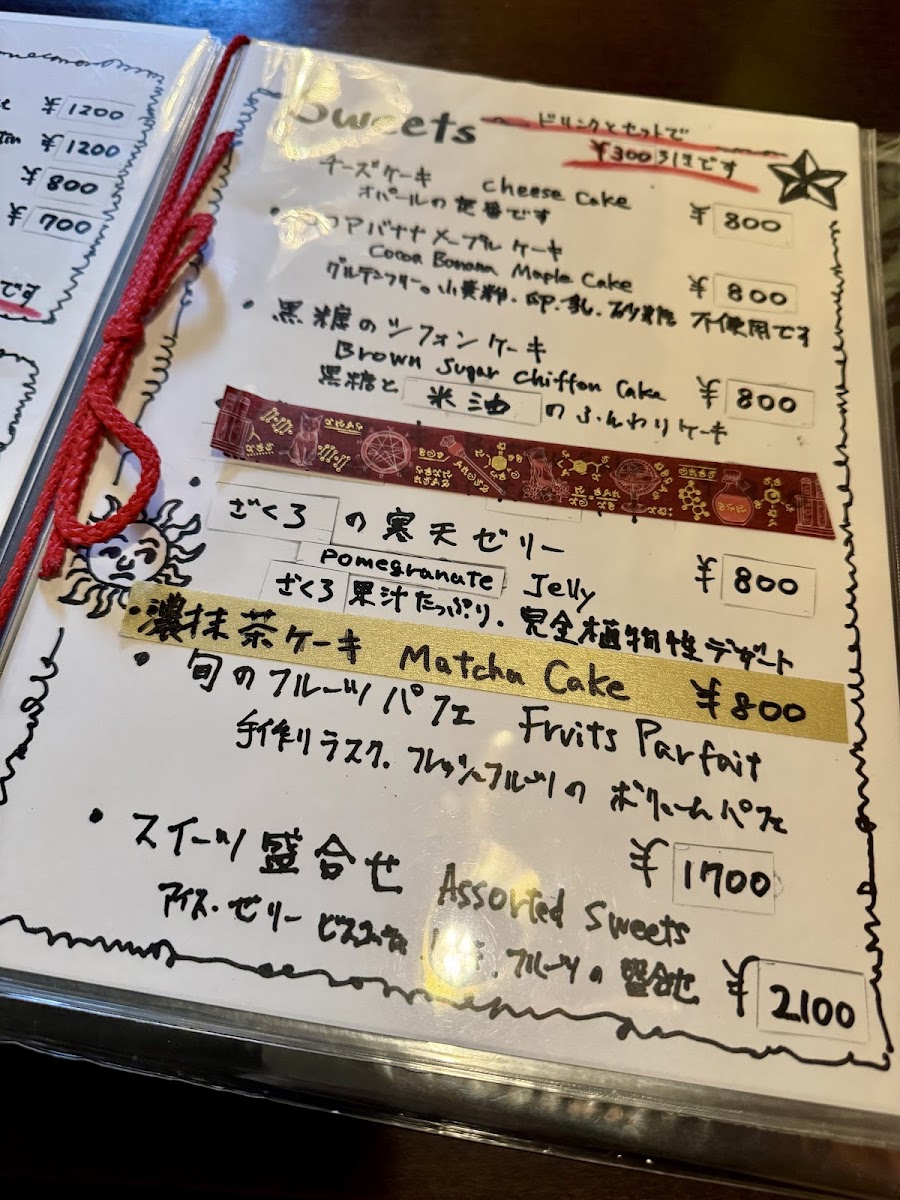 ¥1200
¥1200
¥800
¥700
です
Sweets
ドリンクとセットで
¥300引きです
チーズケーキ Cheese Cake ¥800
オパールの定番です
ココアバナナメープルケーキ
Cocoa Banana Maple Cake ¥800
グルテンフリー。小麦粉・卵・乳・砂糖 不使用です
・黒糖のシフォンケーキ
Brown Sugar Chiffon Cake ¥800
黒糖と 米油 のふんわりケーキ
・ざくろの寒天ゼリー
Pomegranate Jelly ¥800
ざくろ果汁たっぷり。完全植物性デザート
・濃抹茶ケーキ Matcha Cake ¥800
・旬のフルーツパフェ Fruits Parfait
手作りラスク、フレッシュフルーツの ボリュームパフェ
¥1700
・スイーツ盛合せ Assorted Sweets
アイス・ゼリー フルーツの盛合せ ¥2100